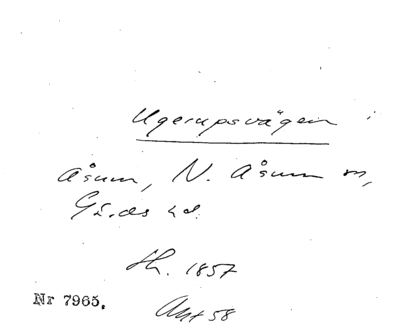 Ugerupsvägen i
Åsum, N. Åsum sn,
Gärds hd.
Sk. 1857
Nr 7965.
Akt 58